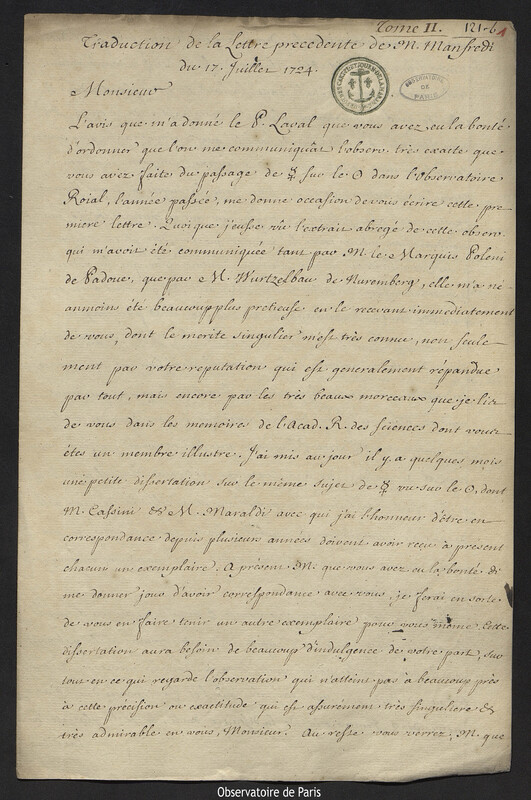 Tome II. 121-6
Traduction de la Lettre precedente de M. Manfredi
du 17. Juillet 1724.
Monsieur
L'avis que m'a donné le P. Laval que vous avez eu la bonté
d'ordonner que l'on me communiquât l'observ. très exacte que
vous avez faite du passage de ☿ sur le ☉ dans l'Observatoire
Roial, l'année passée, me donne occasion de vous écrire cette pre-
miere lettre. Quoique j'eusse vû l'extrait abregé de cette observ.
qui m'avoit été communiquée tant par M. le Marquis Poleni
de Padoue, que par M. Wurtzelbau de Nuremberg, elle m'a né
anmoins été beaucoup plus pretieuse en le recevant immédiatement
de vous, dont le merite singulier m'est très connu, non seule
ment par votre reputation qui est generalement répandue
par tout, mais encore par les très beaux morceaux que je lis
de vous dans les memoires de l'Acad. R. des Sciences dont vous
êtes un membre illustre. J'ai mis au jour il y a quelques mois
une petite dissertation sur le même sujet de ☿ vu sur le ☉, dont
M. Cassini & M. Maraldi avec qui j'ai l'honneur d'être en
correspondance depuis plusieurs années doivent avoir reçu à present
chacun un exemplaire. A présent M. que vous avez eu la bonté de
me donner jour d'avoir correspondance avec vous, je ferai en sorte
de vous en faire tenir un autre exemplaire pour vous même. Cette
dissertation aura besoin de beaucoup d'indulgence de votre part, sur
tout en ce qui regarde l'observation qui n'atteint pas à beaucoup près
à cette précision ou exactitude qui est assurément très singuliere &
très admirable en vous, Monsieur. Au reste vous verrez, M. que
OBSERVATOIRE DE PARIS
Observatoire de Paris